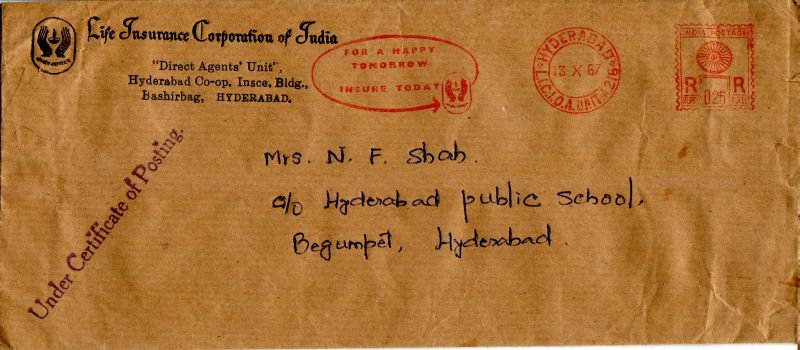 Life Insurance Corporation of India
"Direct Agents' Unit",
Hyderabad Co-op. Insce. Bldg.,
Bashirbag, HYDERABAD.
FOR A HAPPY
TOMORROW
INSURE TODAY
HYDERABAD
13 X 67
L.I.C.I.D.A. UNIT
INDIA POSTAGE
R R
025
Under Certificate of Posting.
Mrs. N. F. Shah.
c/o Hyderabad public School,
Begumpet, Hyderabad.